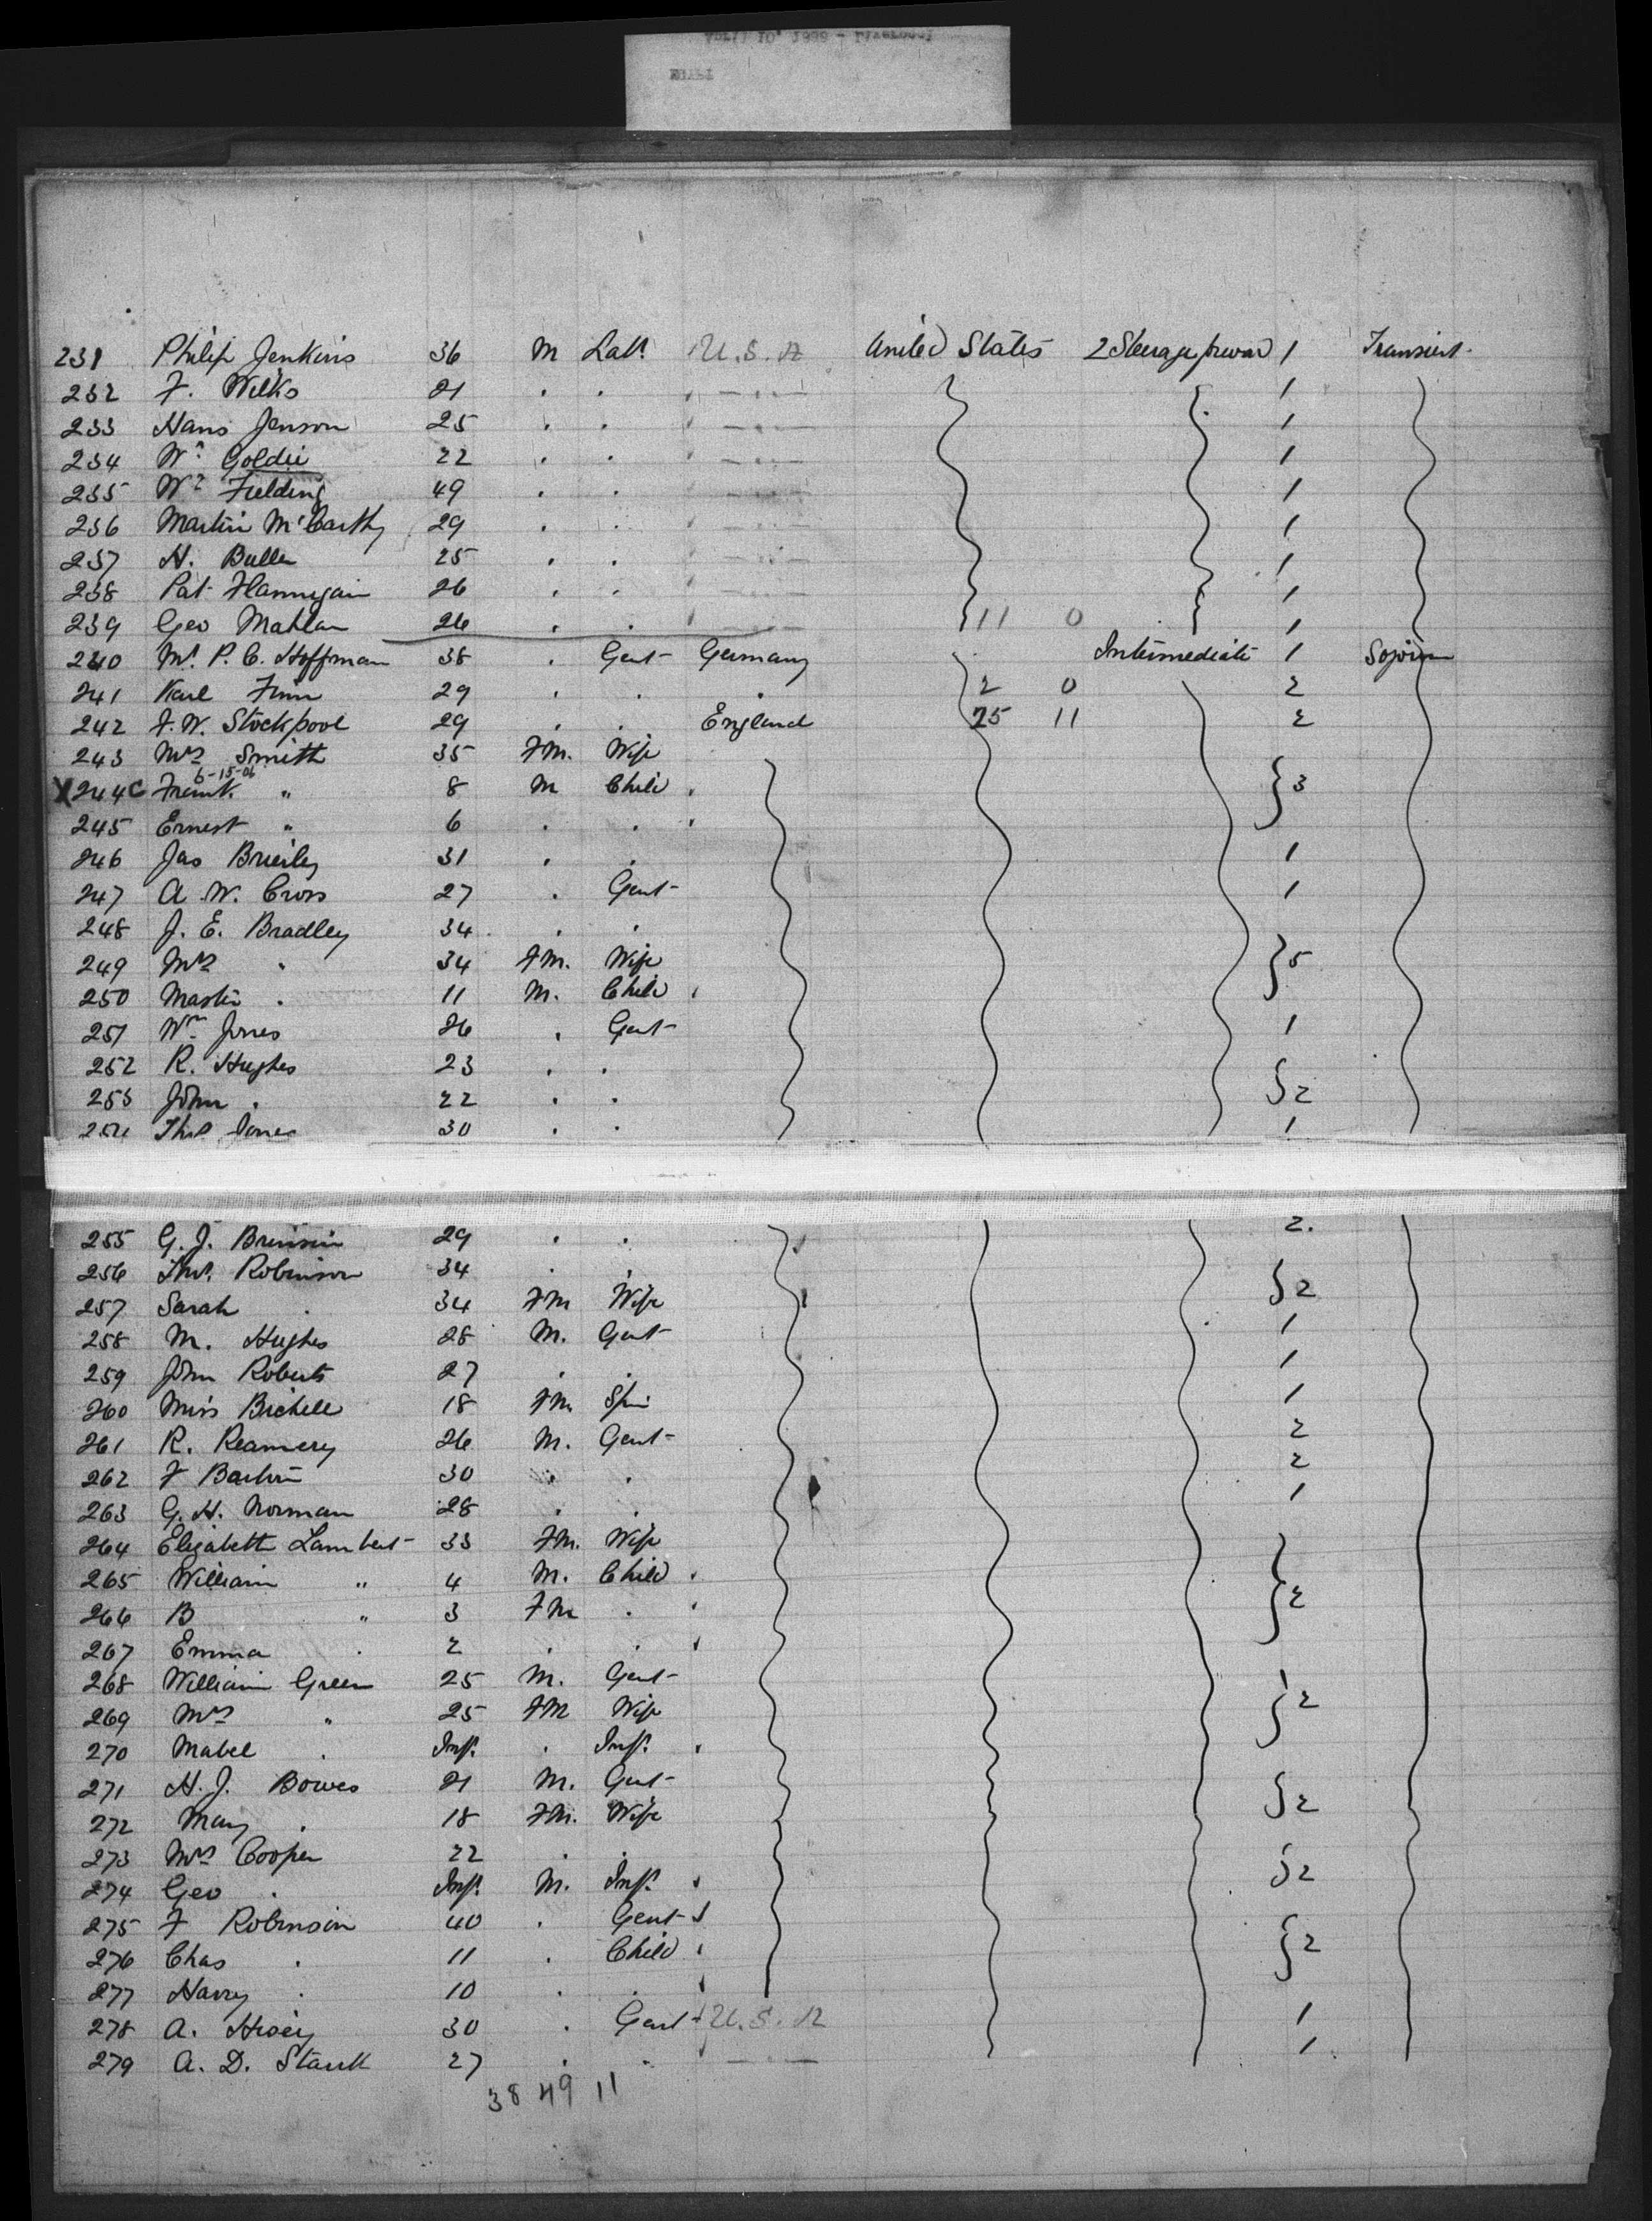 231 Philip Jenkins 36 M Labr U.S.A United States 2 Steerage forward 1 Transient
232 F. Wilks 21 . . " — " — 1
233 Hans Jenson 25 . . " — " — 1
234 Wm Goldie 22 . . " — " — 1
235 Wm Fielding 49 . . " — " — 1
236 Martin McCarthy 29 . . " — " — 1
237 H. Buller 25 . . " — " — 1
238 Pat Flannigan 26 . . " — " — 1
239 Geo Mahlan 26 . . " — 11 0 1
240 Mr. P. C. Hoffman 38 . Gent Germany Intermediate 1 Sojourn
241 Karl 29 . . . 2 0 2
242 F. W. Stockpool 29 . . England 25 11 2
243 Mrs Smith 35 FM. Wife
6-15-06
X 244 C Frank " 8 M Child } 3
245 Ernest " 6 . .
246 Jas Brierley 31 . . 1
247 A. W. Cross 27 . Gent 1
248 J. E. Bradley 34 . .
249 Mrs " 34 FM. Wife } 5
250 Master . 11 M. Child
251 Wm Jones 26 . Gent 1
252 R. Hughes 23 . .
253 John . 22 . . } 2
254 Thos Jones 30 . . 1
255 G. J. 29 . . 2.
256 Thos. Robinson 34 . .
257 Sarah . 34 FM Wife } 2
258 M. Hughes 28 M. Gent 1
259 John Roberts 27 . . 1
260 Miss Bichell 18 FM Spin 1
261 R. Reamery 26 M. Gent 2
262 F Barton 30 . . 2
263 G. H. Norman 28 . . 1
264 Elizabeth Lambert 33 FM. Wife
265 William " 4 M. Child
266 B " 3 FM . } 2
267 Emma . 2 . .
268 William Green 25 M. Gent
269 Mrs " 25 FM Wife } 2
270 Mabel . Inft. . Inft.
271 H. J. Bowes 21 M. Gent
272 Mary . 18 FM. Wife } 2
273 Mrs Cooper 22 . .
274 Geo . Inft. M. Inft. } 2
275 F Robinson 40 . Gent
276 Chas . 11 . Child } 2
277 Harry . 10 . .
278 A. 30 . Gent U.S.A 1
279 A. D. Stark 27 . . " — " — 1
38 49 11